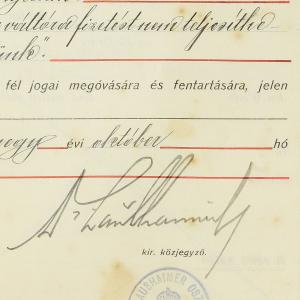 váltóra fizetést nem teljesíthe-
tünk".
fél jogai megóvására és fentartására, jelen
évi október hó
kir. közjegyző.